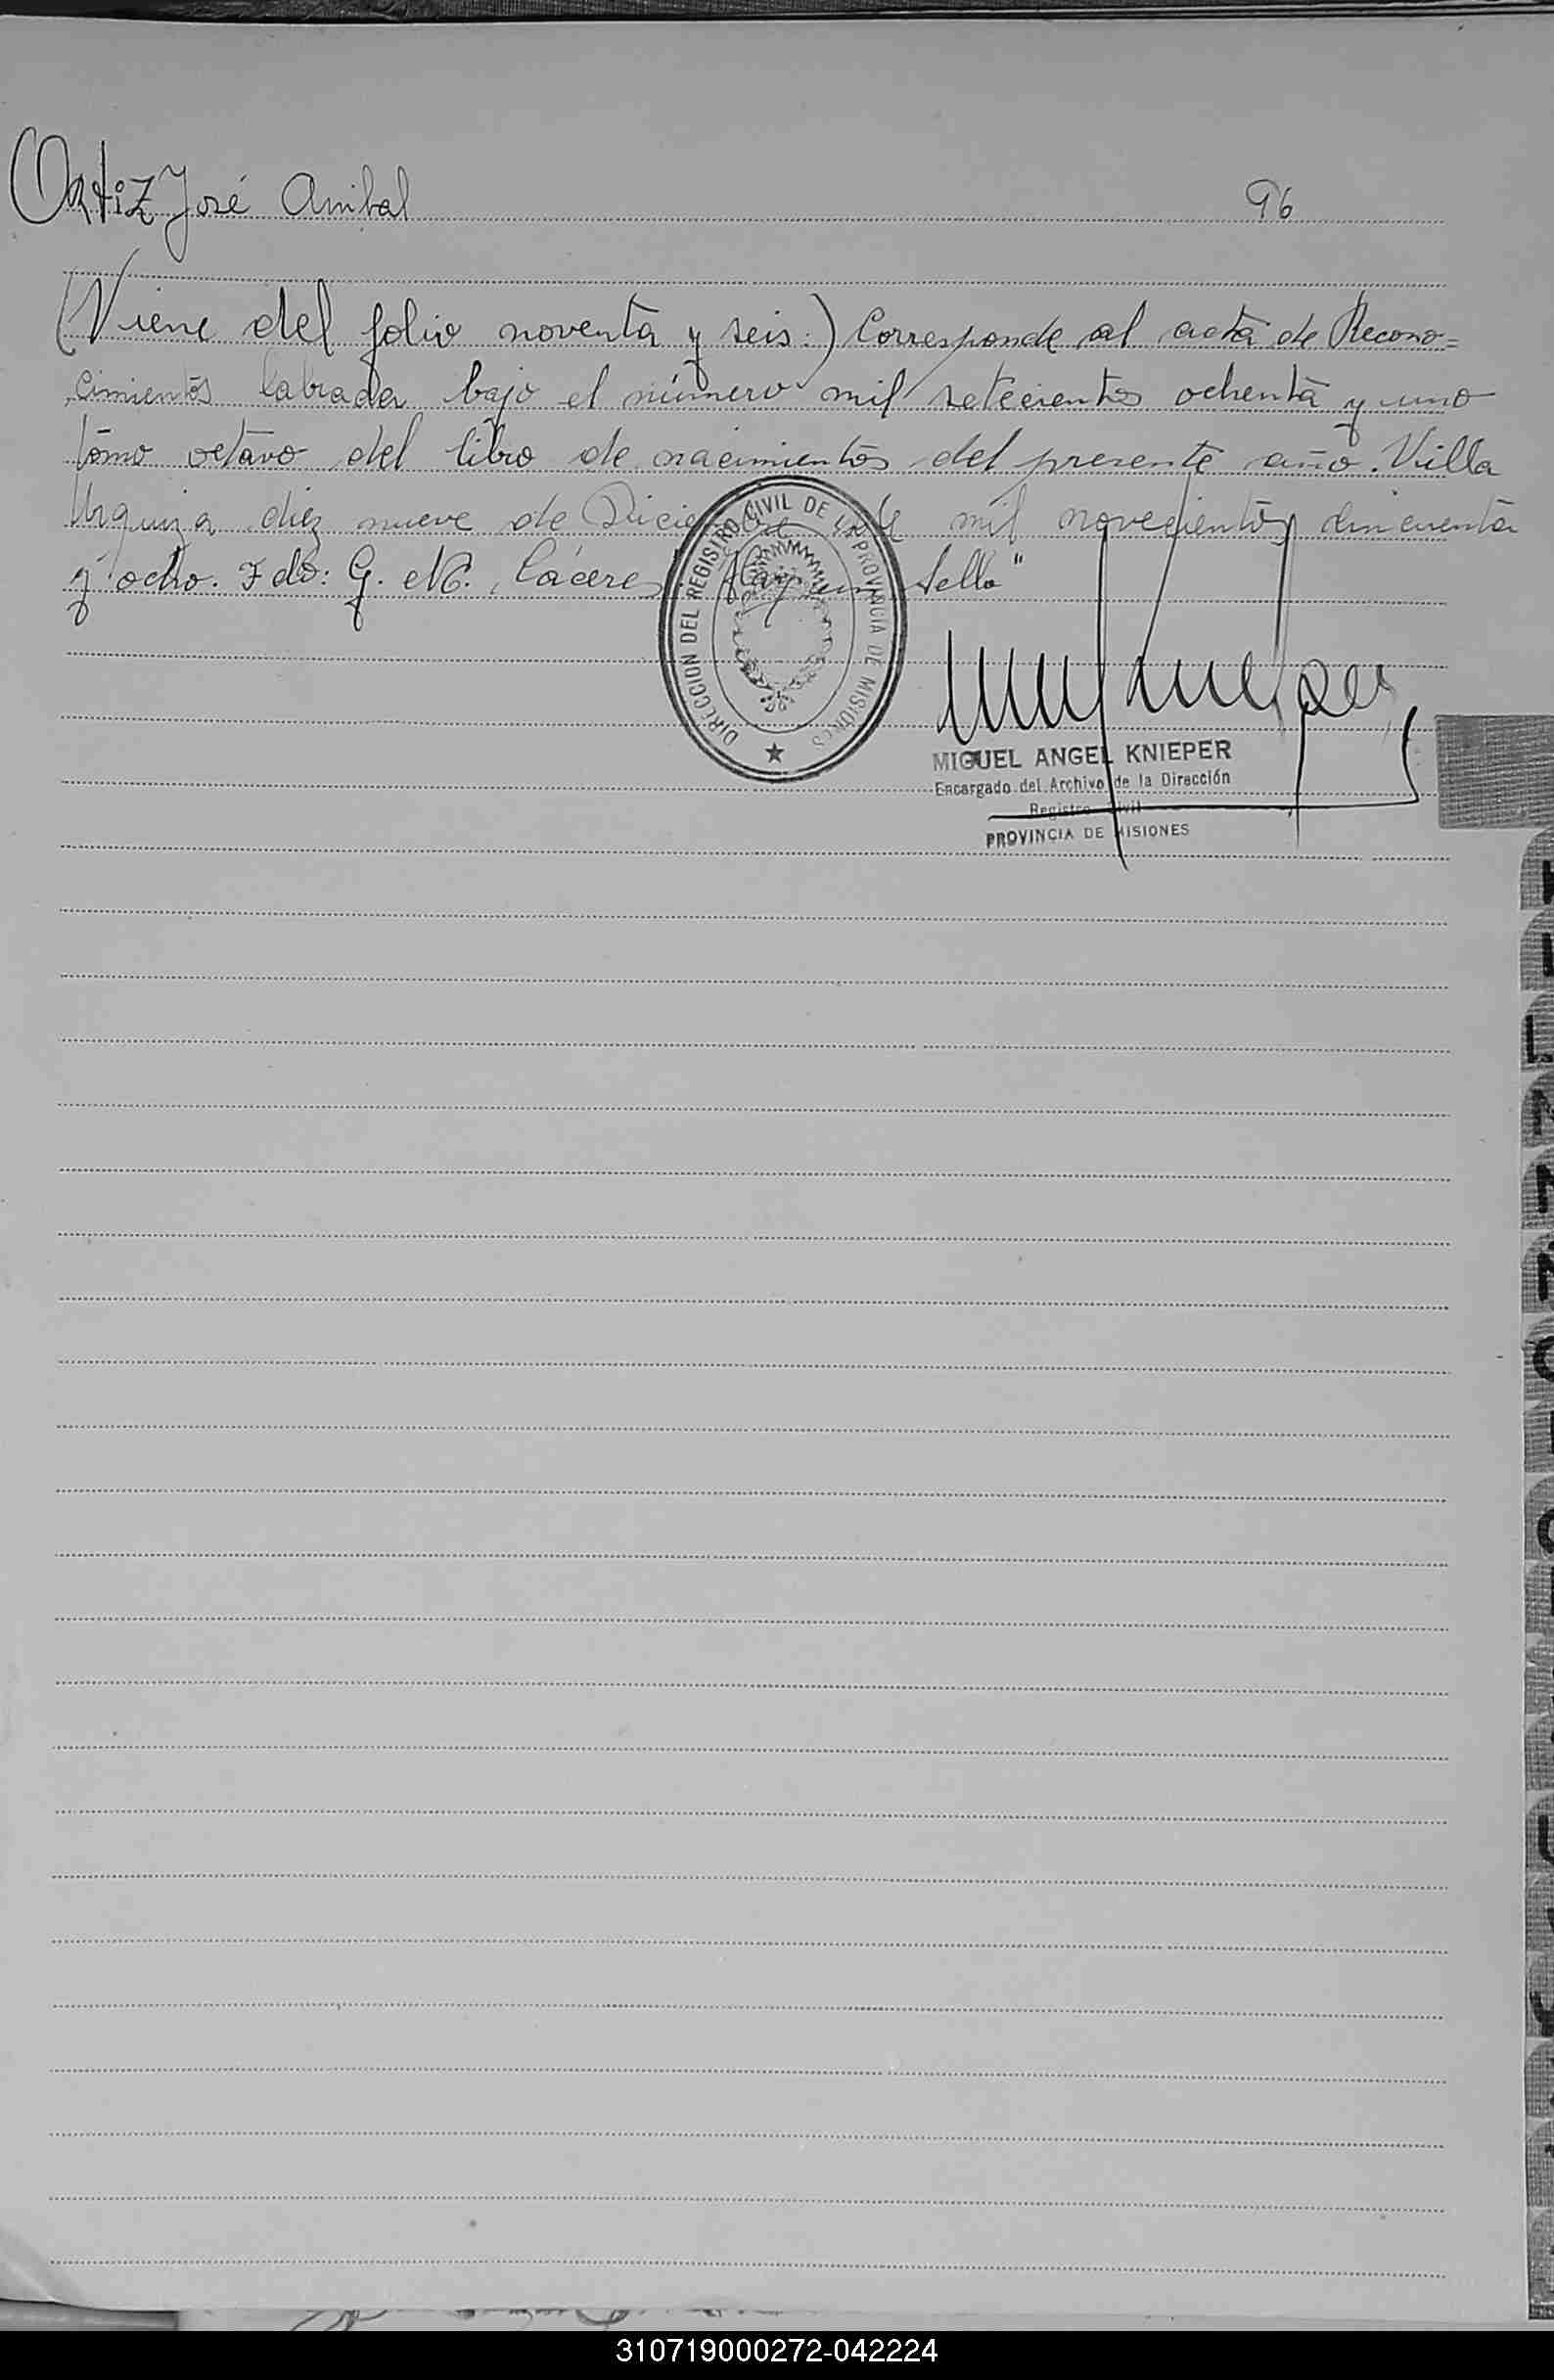 Ortiz José Anibal 96
(Viene del folio noventa y seis:) Corresponde al acta de Recono=
cimientos labrada bajo el número mil setecientos ochenta y uno
tomo octavo del libro de nacimientos del presente año. Villa
Urquiza diez nueve de Diciembre de mil novecientos cincuenta
y ocho. Fdo: G. M. Cáceres. Hay un sello"
DIRECCION DEL REGISTRO CIVIL DE LA PROVINCIA DE MISIONES
MIGUEL ANGEL KNIEPER
Encargado del Archivo de la Dirección
Registro Civil
PROVINCIA DE MISIONES
310719000272-042224